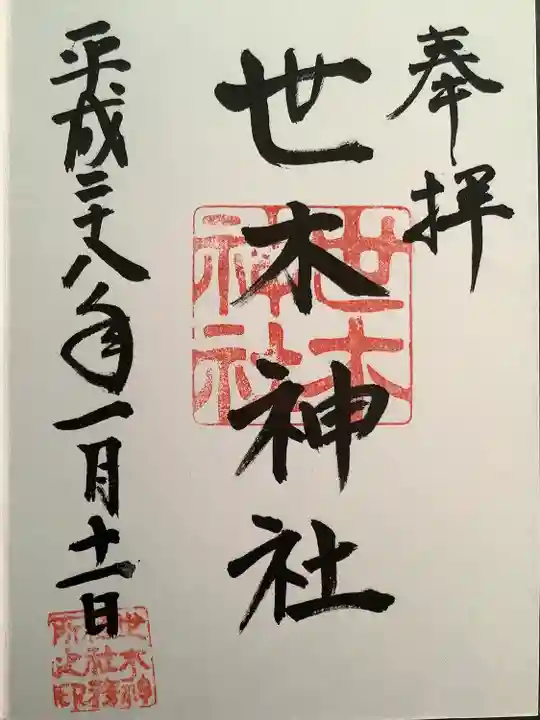 奉拝
世木神社
世木神社
平成二十八年一月十一日
世木神
社務
所之印